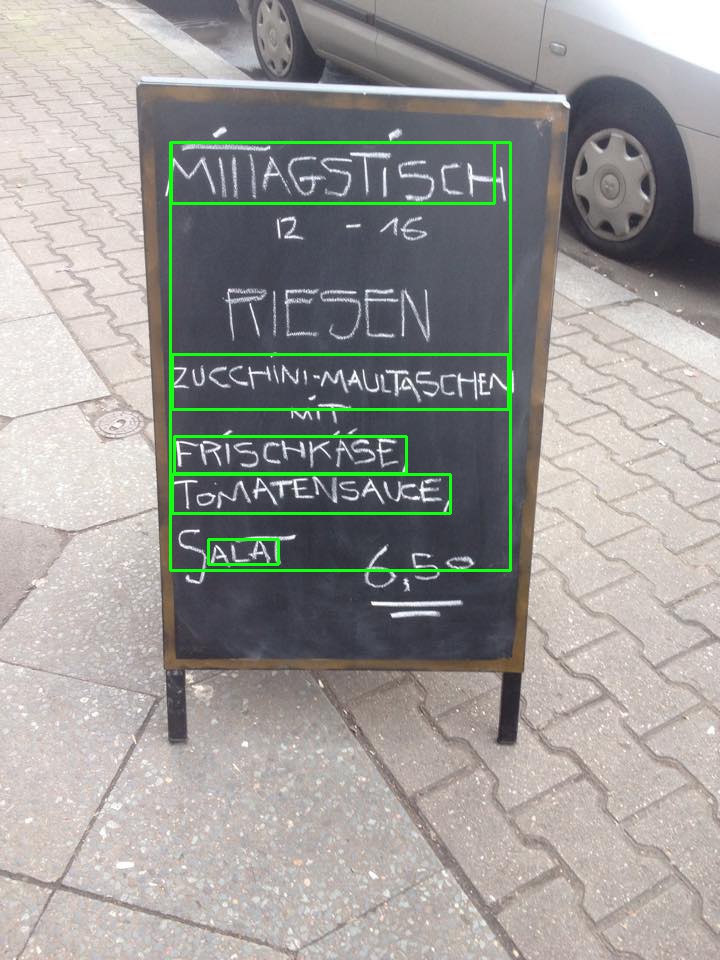 MITTAGSTISCH
12 - 16
RIESEN
ZUCCHINI-MAULTASCHEN
MIT
FRISCHKÄSE,
TOMATENSAUCE,
SALAT
6,50